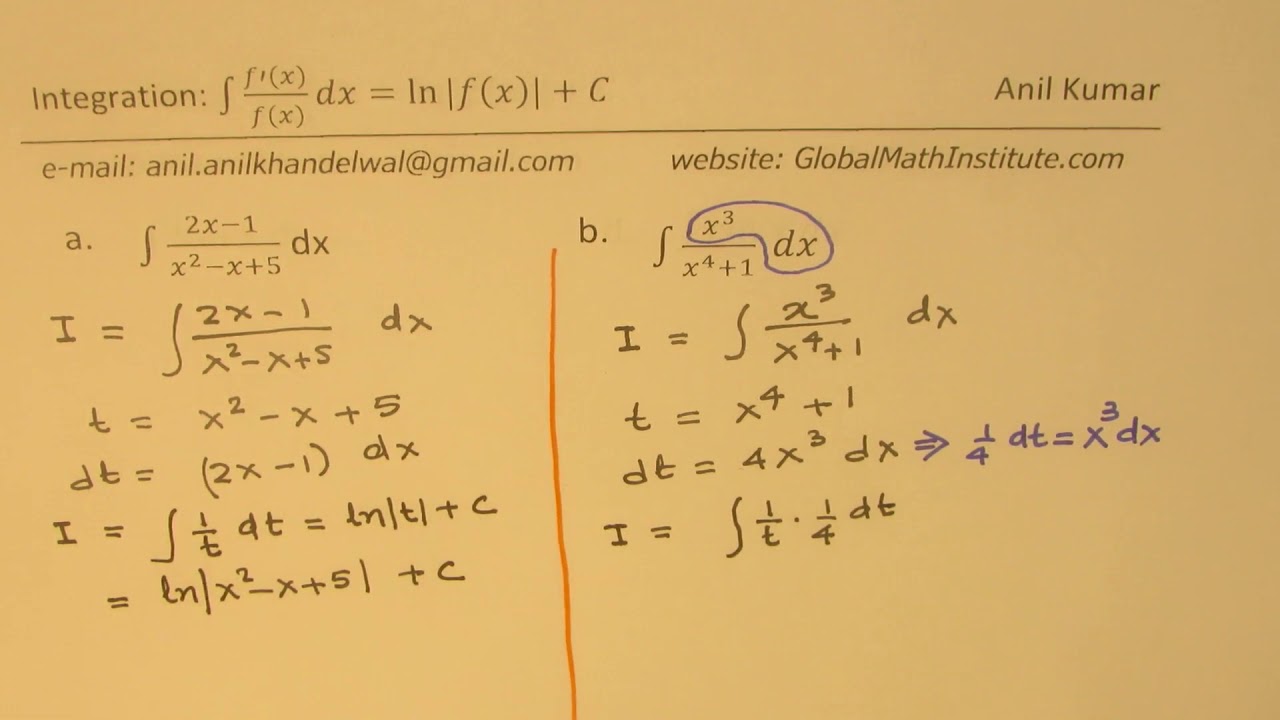 Integration: ∫ f′(x)/f(x) dx = ln |f(x)| + C
Anil Kumar
e-mail: anil.anilkhandelwal@gmail.com
website: GlobalMathInstitute.com
a. ∫ (2x−1)/(x²−x+5) dx
I = ∫ (2x−1)/(x²−x+5) dx
t = x² − x + 5
dt = (2x−1) dx
I = ∫ 1/t dt = ln|t| + C
= ln|x²−x+5| + C
b. ∫ x³/(x⁴+1) dx
I = ∫ x³/(x⁴+1) dx
t = x⁴ + 1
dt = 4x³ dx ⇒ 1/4 dt = x³dx
I = ∫ 1/t · 1/4 dt